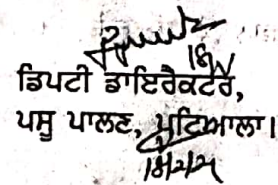 ਡਿਪਟੀ ਡਾਇਰੈਕਟਰ,
ਪਸ਼ੂ ਪਾਲਣ, ਪਟਿਆਲਾ।